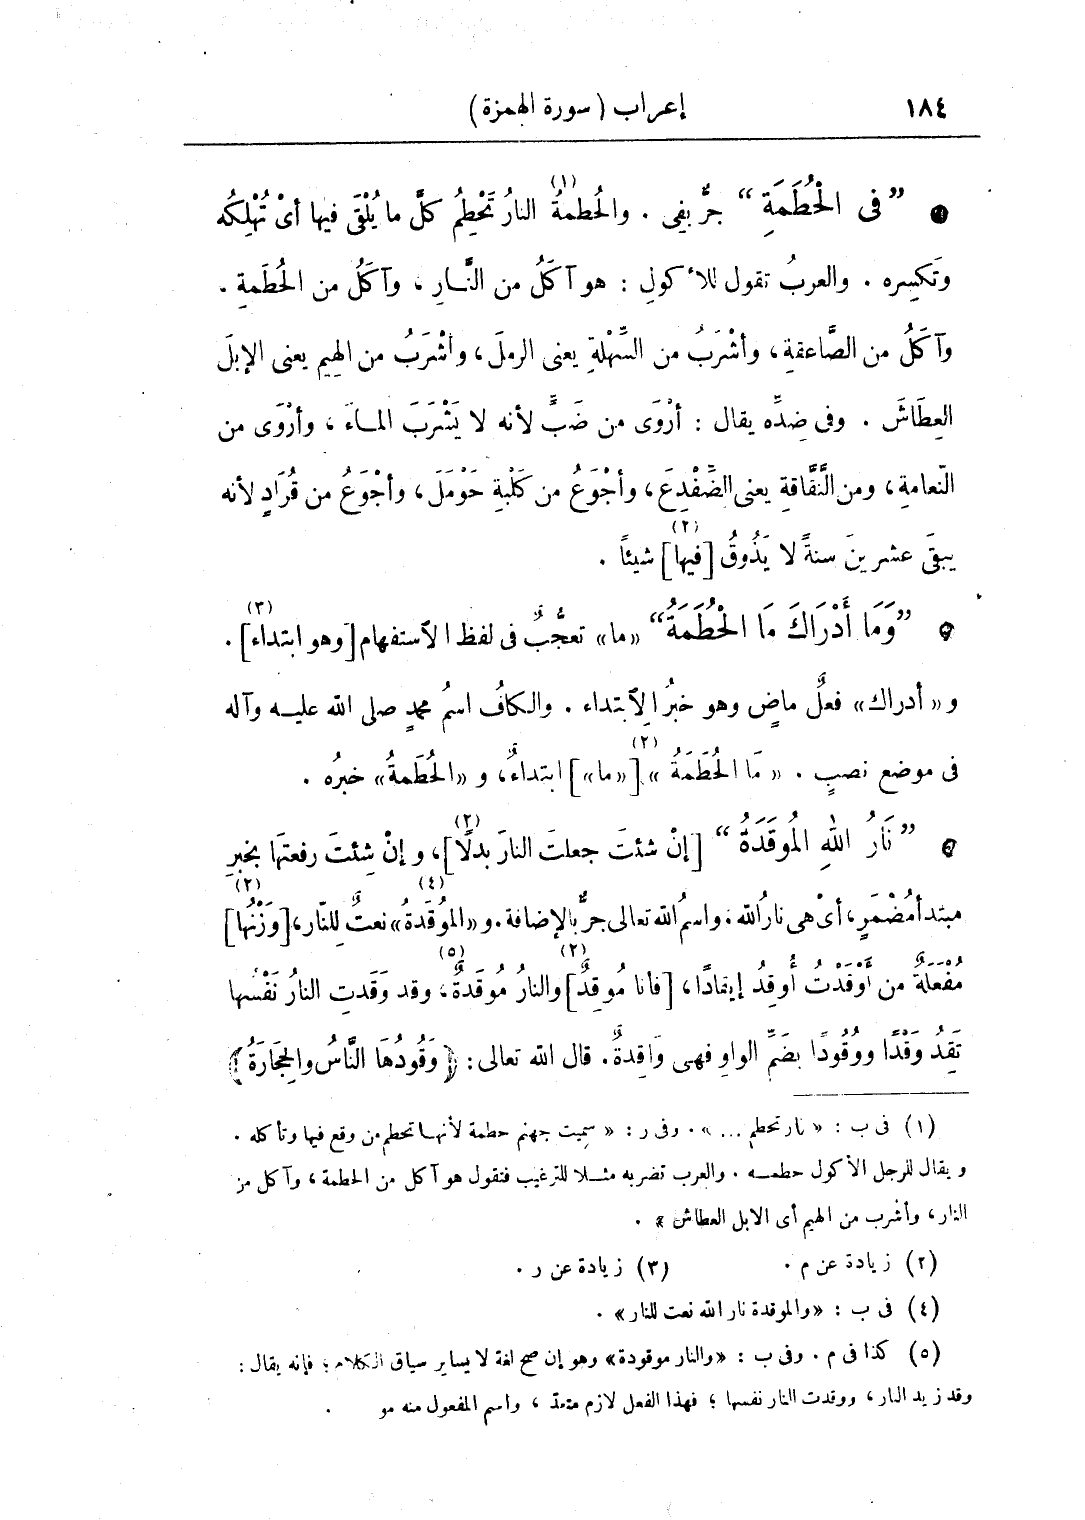 ١٨٤ إعراب (سورة الهمزة)
● ”فِى الْحُطَمَةِ“ جرٌّ بفِى . والحُطمةُ(١) النارُ تَحْطِمُ كلَّ ما يُلْقَى فيها أىْ تُهْلِكُه
وتَكسِره . والعربُ تقول للأكولِ : هو آكَلُ من النَّـارِ ، وآكَلُ من الحُطَمةِ .
وآكَلُ من الصَّاعقةِ، وأشْرَبُ من السِّهْلةِ يعنى الرملَ، وأشْرَبُ من الهِيم يعنى الإبلَ
العِطَاشَ . وفى ضِدِّه يقال : أرْوَى من ضَبٍّ لأنه لا يَشْرَبَ المـاءَ ، وأرْوَى من
النّعامةِ، ومن النَّقَّاقةِ يعنى الضِّفْدِعَ، وأجْوَعُ من كَلْبةِ حَوْمَلَ، وأجْوَعُ من قُرَادٍ لأنه
يبقَى عشرينَ سنةً لا يَذُوقُ [فيها](٢) شيئاً .
● ”وَمَا أَدْرَاكَ مَا الْحُطَمَةُ“ «ما» تعجُّبٌ فى لفظ الاستفهام [وهو ابتداء](٣) .
و «أدراك» فعلٌ ماضٍ وهو خبرُ الابتداء . والكافُ اسمُ محمدٍ صلى الله عليـه وآله
فى موضع نصبٍ . «مَا الحُطَمَةُ» [«ما»](٢) ابتداءٌ، و «الحُطَمةُ» خبرُه .
● ”نَارُ اللهِ المُوقَدَةُ“ [إنْ شئتَ جعلتَ النارَ بدلًا](٢)، وإنْ شِئتَ رفعتَها بخبرِ
مبتدأ مُضْمَرٍ، أىْ هى نارُ الله. واسمُ الله تعالى جرٌّ بالإضافة. و «المُوقَدةُ»(٤) نعتٌ لِلنّار، [وَزْنُها](٢)
مُفْعَلةٌ من أَوْقَدْتُ أُوقِدُ إيقادًا، [فأنا مُوقِدٌ](٢) والنارُ مُوقَدةٌ(٥)، وقد وَقَدتِ النارُ نَفْسُها
تَقِدُ وَقْدًا ووُقُودًا بضَمِّ الواوِ فهى وَاقِدةٌ. قال الله تعالى: ﴿وَقُودُهَا النَّاسُ والحِجَارَةُ﴾
(١) فى ب : «نار تحطم ...» . وفى ر : «سميت جهنم حطمة لأنهـا تحطم من وقع فيها وتأكله .
ويقال للرجل الأكول حطمـه . والعرب تضربه مثـلا للترغيب فتقول هو آكل من الحطمة ، وآكل من
النار، وأشرب من الهيم أى الابل العطاش» .
(٢) زيادة عن م . (٣) زيادة عن ر .
(٤) فى ب : «والموقدة نار الله نعت للنار» .
(٥) كذا فى م . وفى ب : «والنار موقودة» وهو إن صح لغة لا يساير سياق الكلام ؛ فإنه يقال :
وقد زيد النار ، ووقدت النار نفسها ؛ فهذا الفعل لازم متعدّ ، واسم المفعول منه مو .